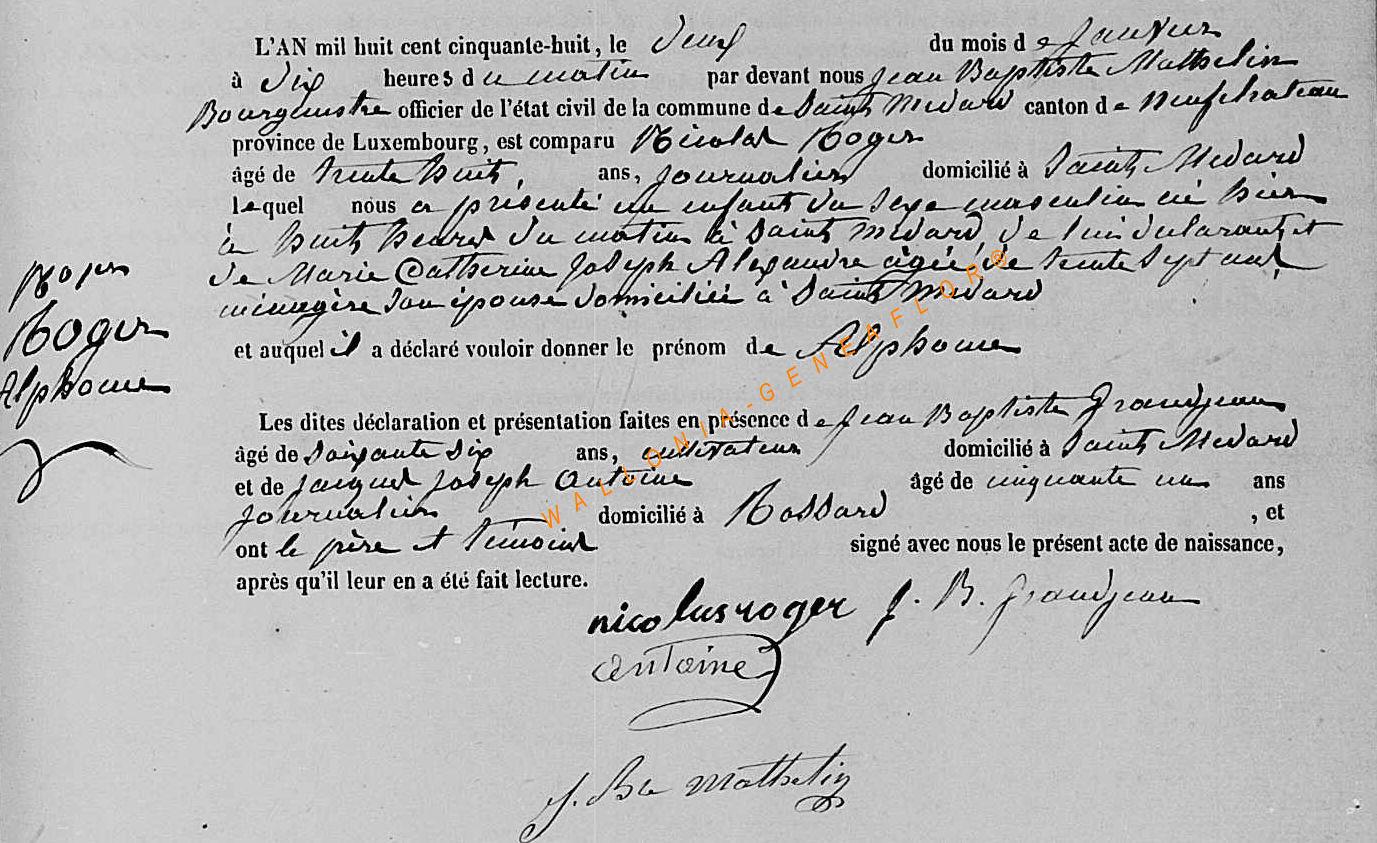 L'AN mil huit cent cinquante-huit, le deux du mois de Janvier
à dix heures du matin par devant nous Jean Baptiste Mathelin
Bourgmestre officier de l'état civil de la commune de Saint Médard canton de Neufchateau
province de Luxembourg, est comparu Nicolas Roger
âgé de trente huit, ans, journalier domicilié à Saint Médard
lequel nous a présenté un enfant du sexe masculin né hier
à huit heures du matin à Saint Médard, de lui déclarant et
de Marie Catherine Joseph Alexandre âgée de trente sept ans
ménagère son épouse domiciliée à Saint Médard
et auquel il a déclaré vouloir donner le prénom de Alphonse
Roger
Alphonse
Les dites déclaration et présentation faites en présence de Jean Baptiste Grandjean
âgé de soixante six ans, cultivateur domicilié à Saint Médard
et de Jacques Joseph Antoine âgé de cinquante un ans
journalier domicilié à Rossard , et
ont le père et témoins signé avec nous le présent acte de naissance,
après qu'il leur en a été fait lecture.
nicolas roger J. B. Grandjean
antoine
J. Bte Mathelin
WALLONIA-GENEAFLOR®